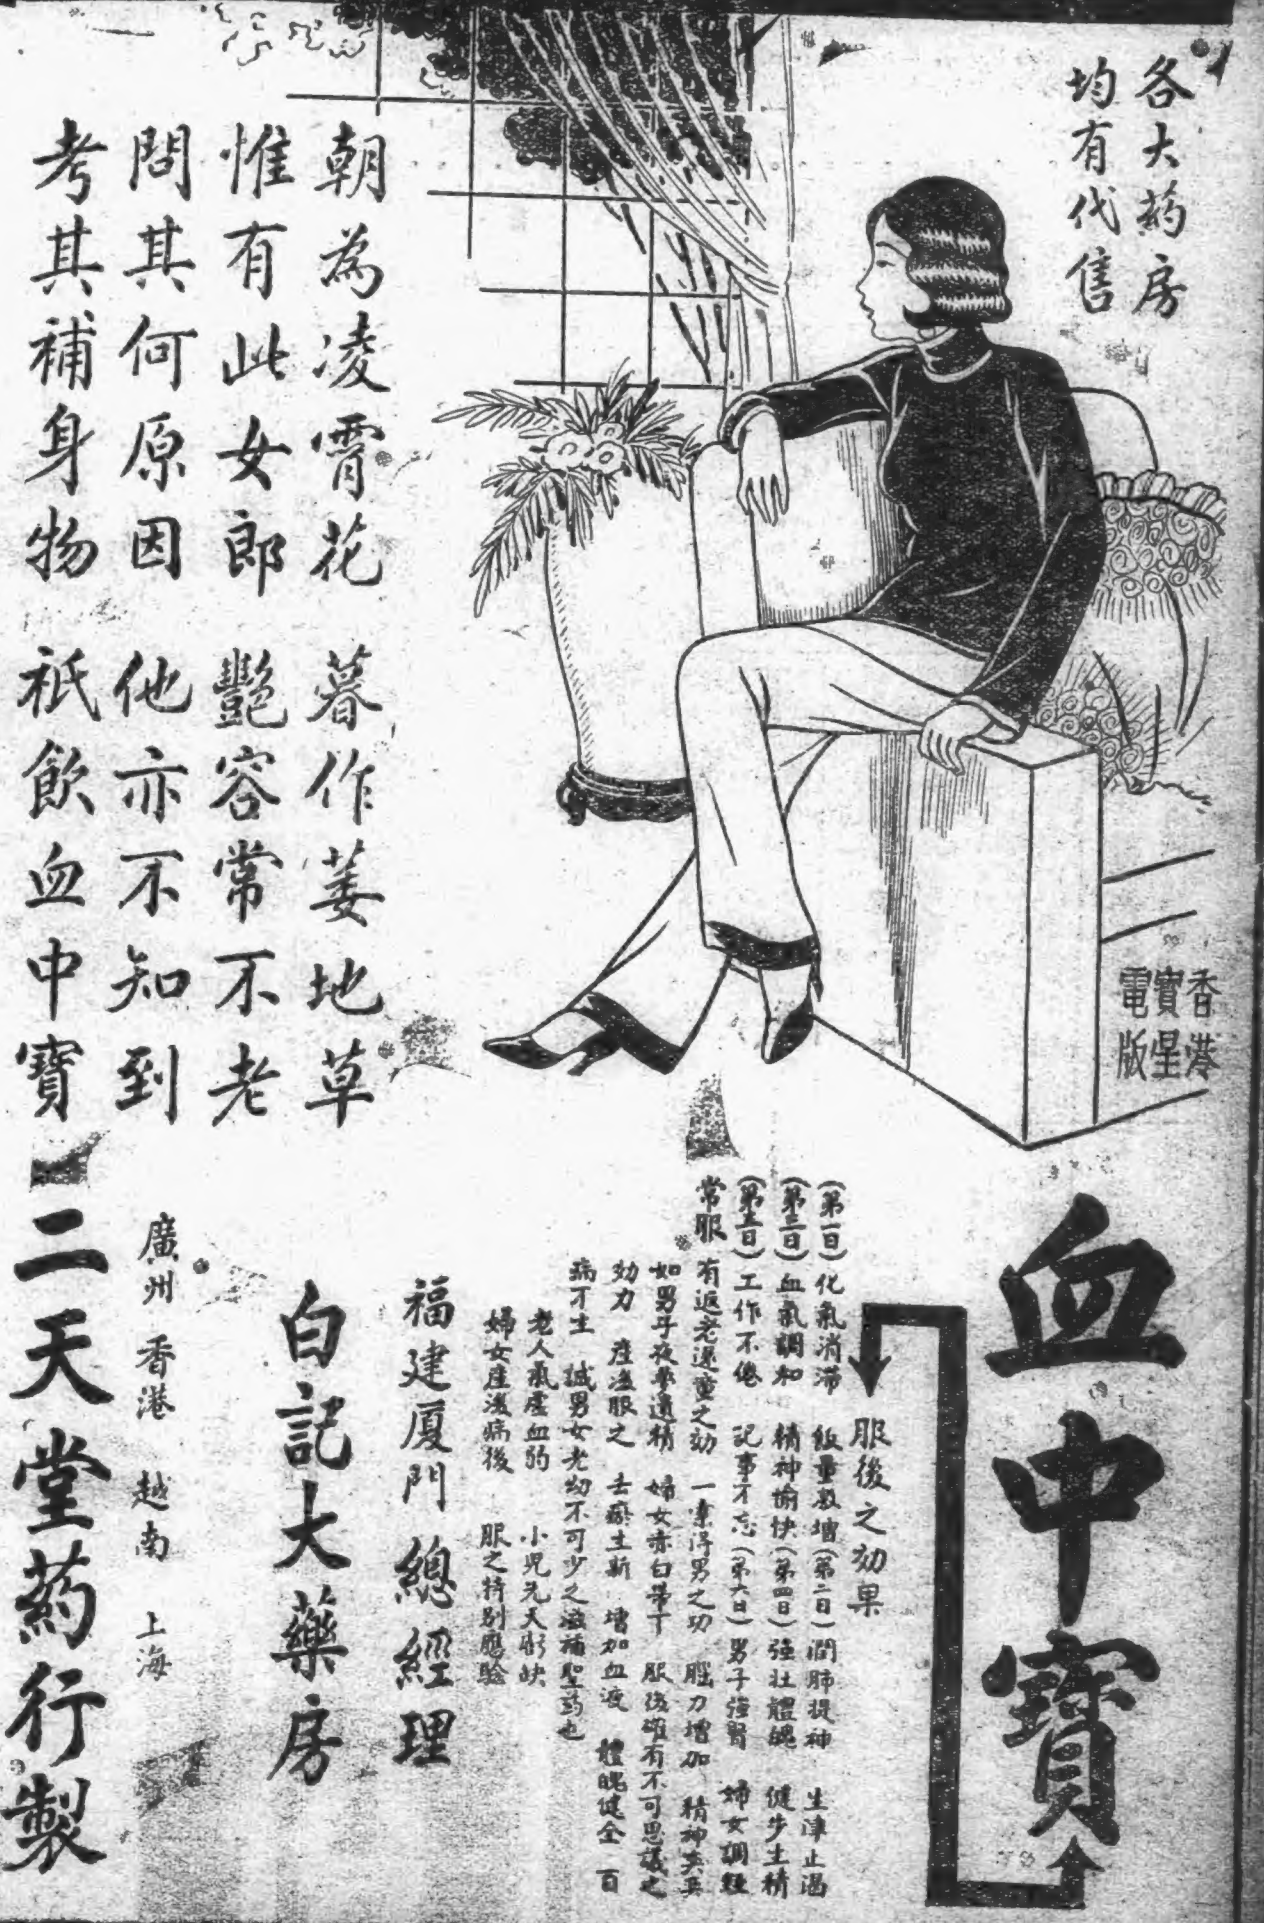 各大药房
均有代售
朝為凌霄花 暮作萎地草
惟有此女郎 艷容常不老
問其何原因 他亦不知到
考其補身物 祇飲血中寶
香港
寶星
電版
血中寶
服後之効果
(第一日)化氣消滞 飯量激增(第二日)潤肺提神 生津止渴
(第三日)血氣調和 精神愉快(第四日)強壯體魄 健步生精
(第五日)工作不倦 記事不忘(第六日)男子強腎 婦女調經
常服 有返老還童之効 一索得男之功 腦力增加 精神爽
如男子夜夢遺精 婦女赤白帶下 服後確有不可思議之
効力 產後服之 去瘀生新 增加血液 體魄健全 百
病不生 誠男女老幼不可少之滋補聖药也
老人氣虛血弱 小兒先天虧缺
婦女產後病後 服之特別應驗
福建廈門 總經理
白記大藥房
廣州 香港 越南 上海
二天堂药行製